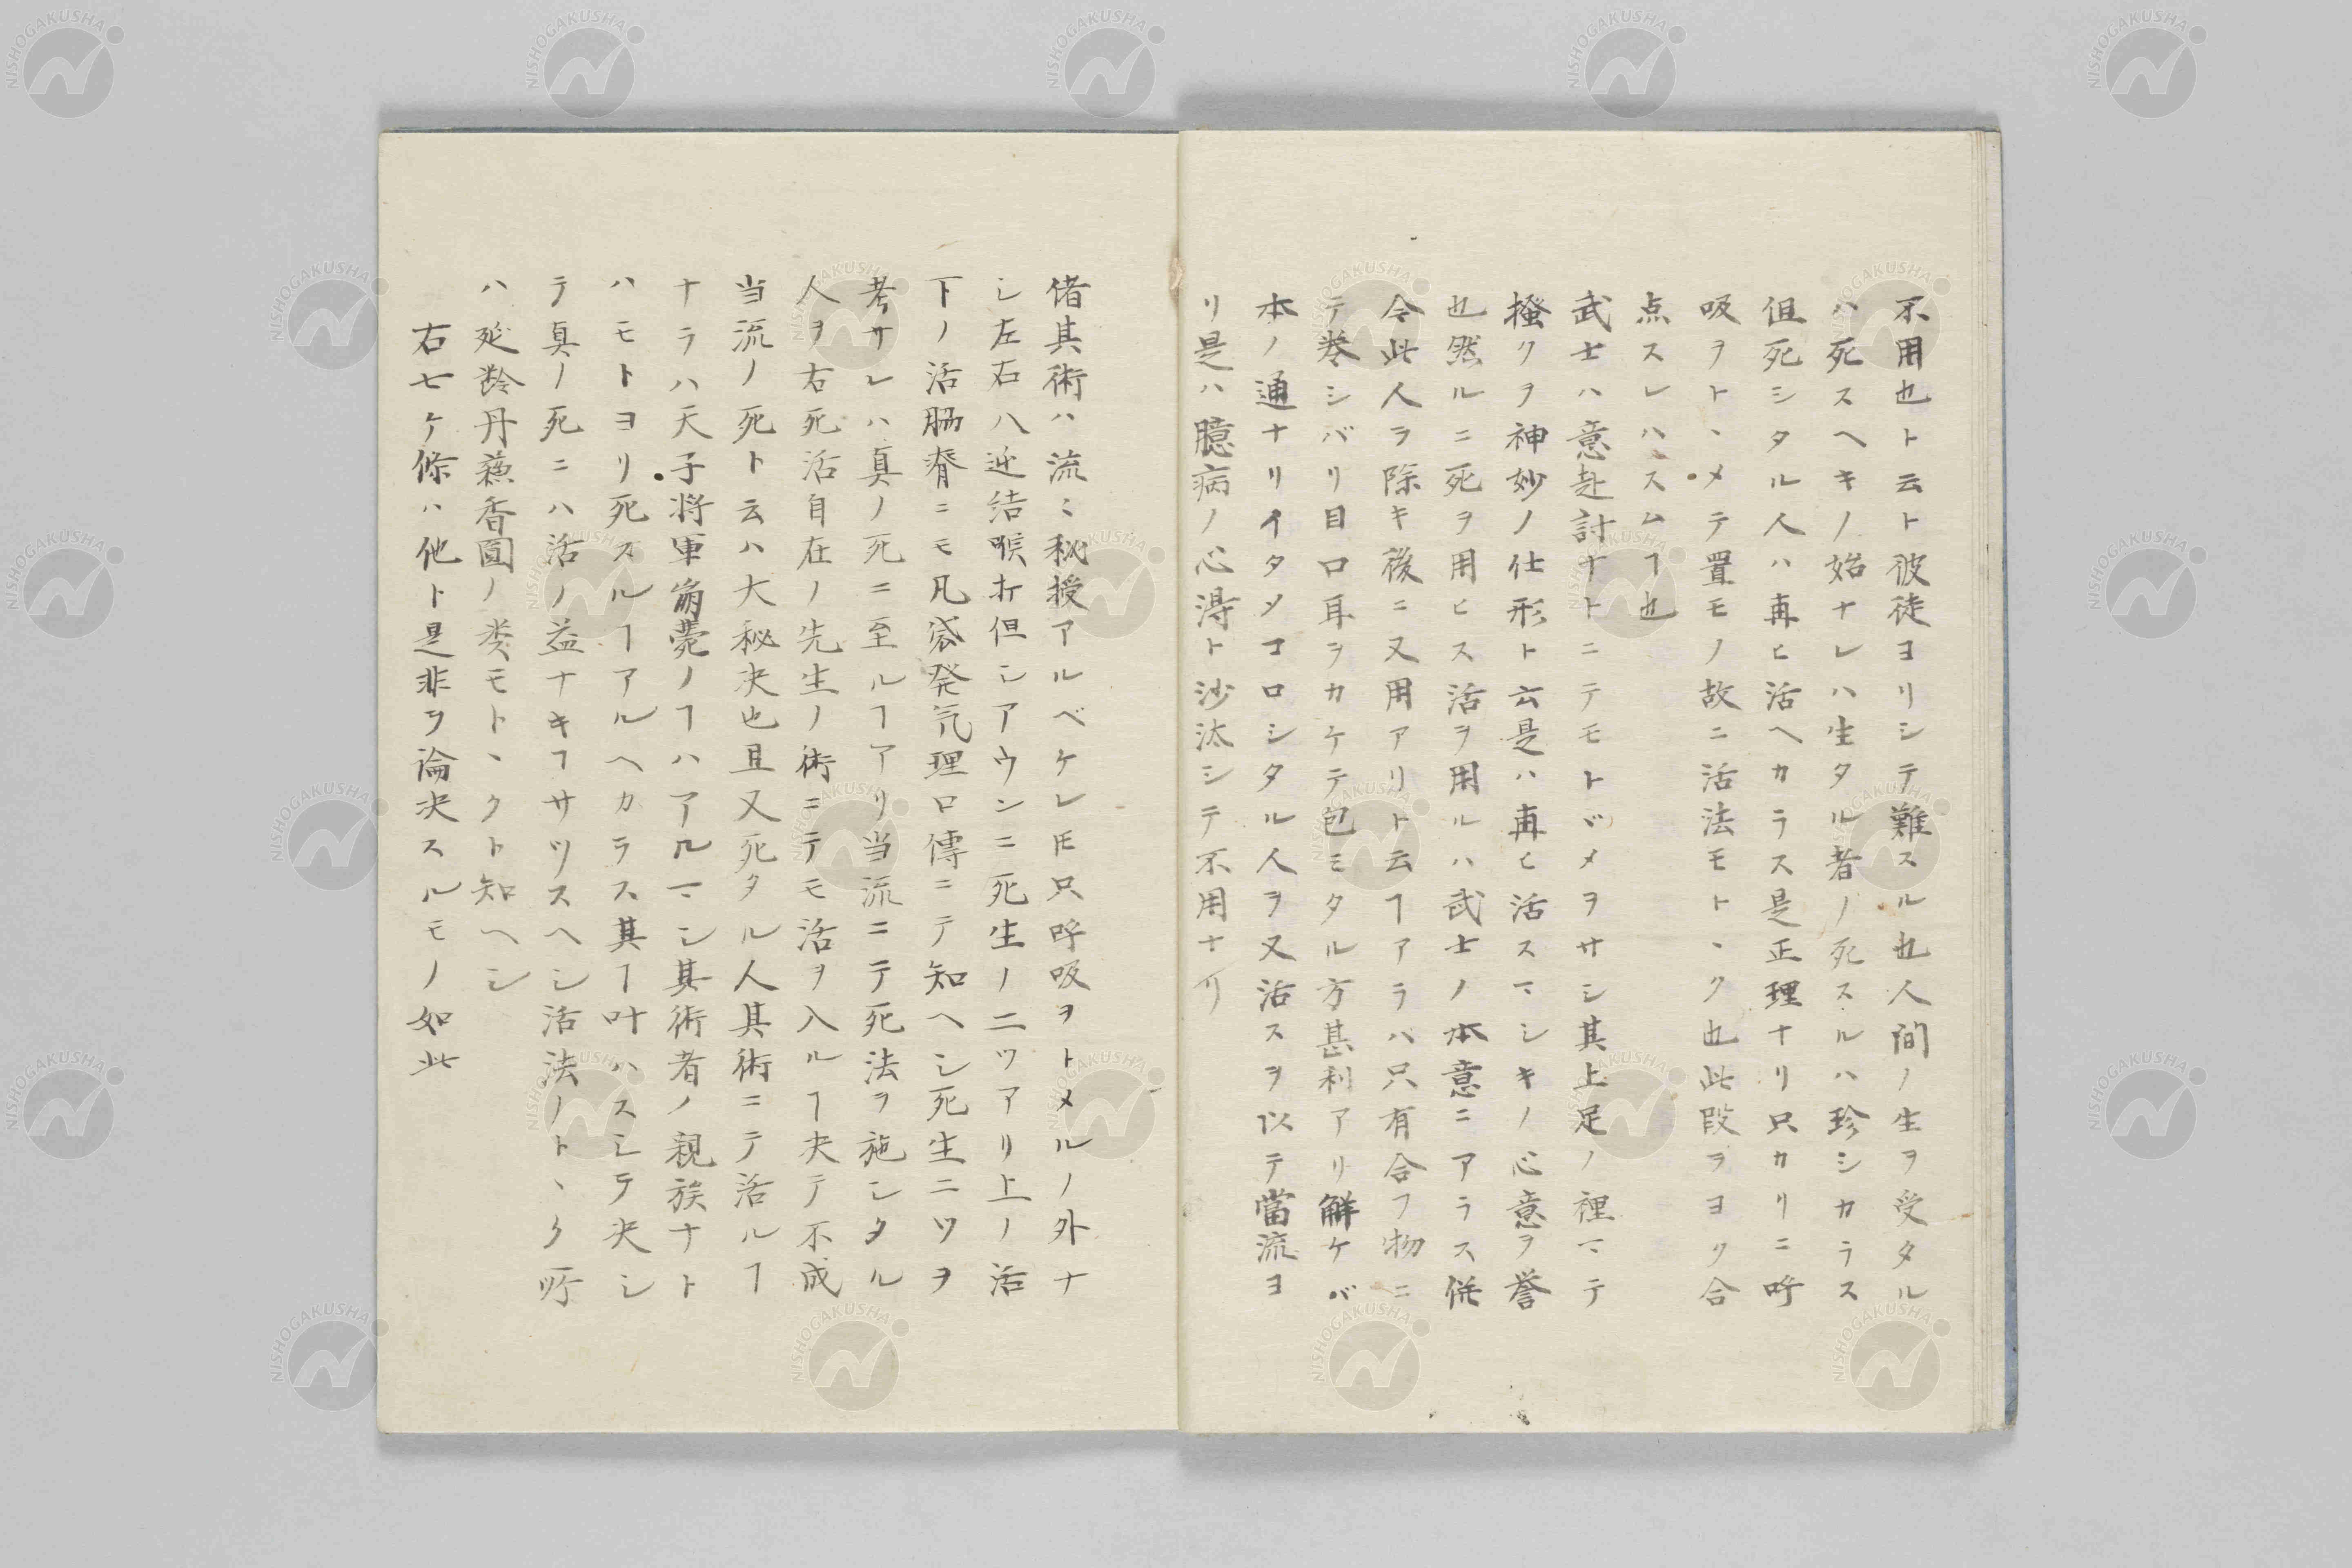 不用也ト云ト彼徒ヨリシテ難スル也人間ノ生ヲ受タル
ハ死スヘキノ始ナレハ生タル者ノ死スルハ珍シカラス
但死シタル人ハ再ヒ活ヘカラス是正理ナリ只カリニ呼
吸ヲト、メテ置モノ故ニ活法モト、ク也此段ヲヨク合
点スレハスムヿ也
武士ハ意趣討ナトニテモトヾメヲサシ其上足ノ裡マテ
掻クヲ神妙ノ仕形ト云是ハ再ヒ活スマシキノ心意ヲ誉
也然ルニ死ヲ用ヒス活ヲ用ルハ武士ノ本意ニアラス併
今此人ヲ除キ後ニ又用アリト云ヿアラバ只有合フ物ニ
テ巻シバリ目口耳ヲカケテ包ミタル方甚利アリ解ケバ
本ノ通ナリイタメコロシタル人ヲ又活スヲ以テ當流ヨ
リ是ハ臆病ノ心得ト沙汰シテ不用ナリ
偖其術ハ流ミ秘授アルベケレ𪜈只呼吸ヲトメルノ外ナ
シ左右ハ迊結喉打但シアウンニ死生ノ二ツアリ上ノ活
下ノ活脇脊ニモ凡袋発気理口傳ニテ知ヘシ死生二ツヲ
考サレハ真ノ死ニ至ルヿアリ当流ニテ死法ヲ施シタル
人ヲ右死活自在ノ先生ノ術ニテモ活ヲ入ルヿ决テ不成
当流ノ死ト云ハ大秘决也且又死タル人其術ニテ活ルヿ
ナラハ天子将軍崩薨ノヿハアルマシ其術者ノ親族ナト
ハモトヨリ死スルヿアルヘカラス其ヿ叶ハスシテ决シ
テ真ノ死ニハ活ノ益ナキヿサツスヘシ活法ノト、ク所
ハ延齢丹蘓香圓ノ类モト、クト知ヘシ
右七ケ條ハ他ト是非ヲ論决スルモノ如此
NISHOGAKUSHA